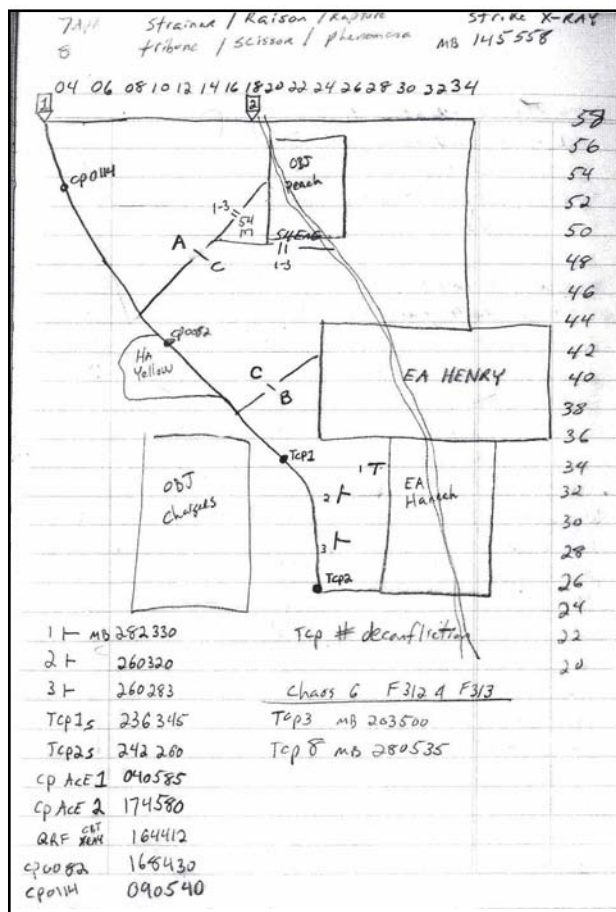 7 Apr Strainer / Raison / Rapture Strike X-RAY
8 tribune / scissor / phenomena MB 145558
04 06 08 10 12 14 16 18 20 22 24 26 28 30 32 34
1
2
58
56
54
52
50
48
46
44
42
40
38
36
34
32
30
28
26
24
22
20
cp0114
OBJ
Peach
1-3
54
A
C
1-3
cp0082
HA
Yellow
C
B
EA HENRY
Tcp1
OBJ
Chargers
1
2
3
EA
Hannah
Tcp2
1 MB 282330
2 260320
3 260283
Tcp1s 236345
Tcp2s 242260
Cp AcE 1 040585
Cp AcE 2 174580
QRF CBT XRAY 164412
cp0082 168430
cp0114 090540
Tcp # deconfliction
Chaos 6 F312 4 F313
Tcp3 MB 203500
Tcp 8 MB 280535